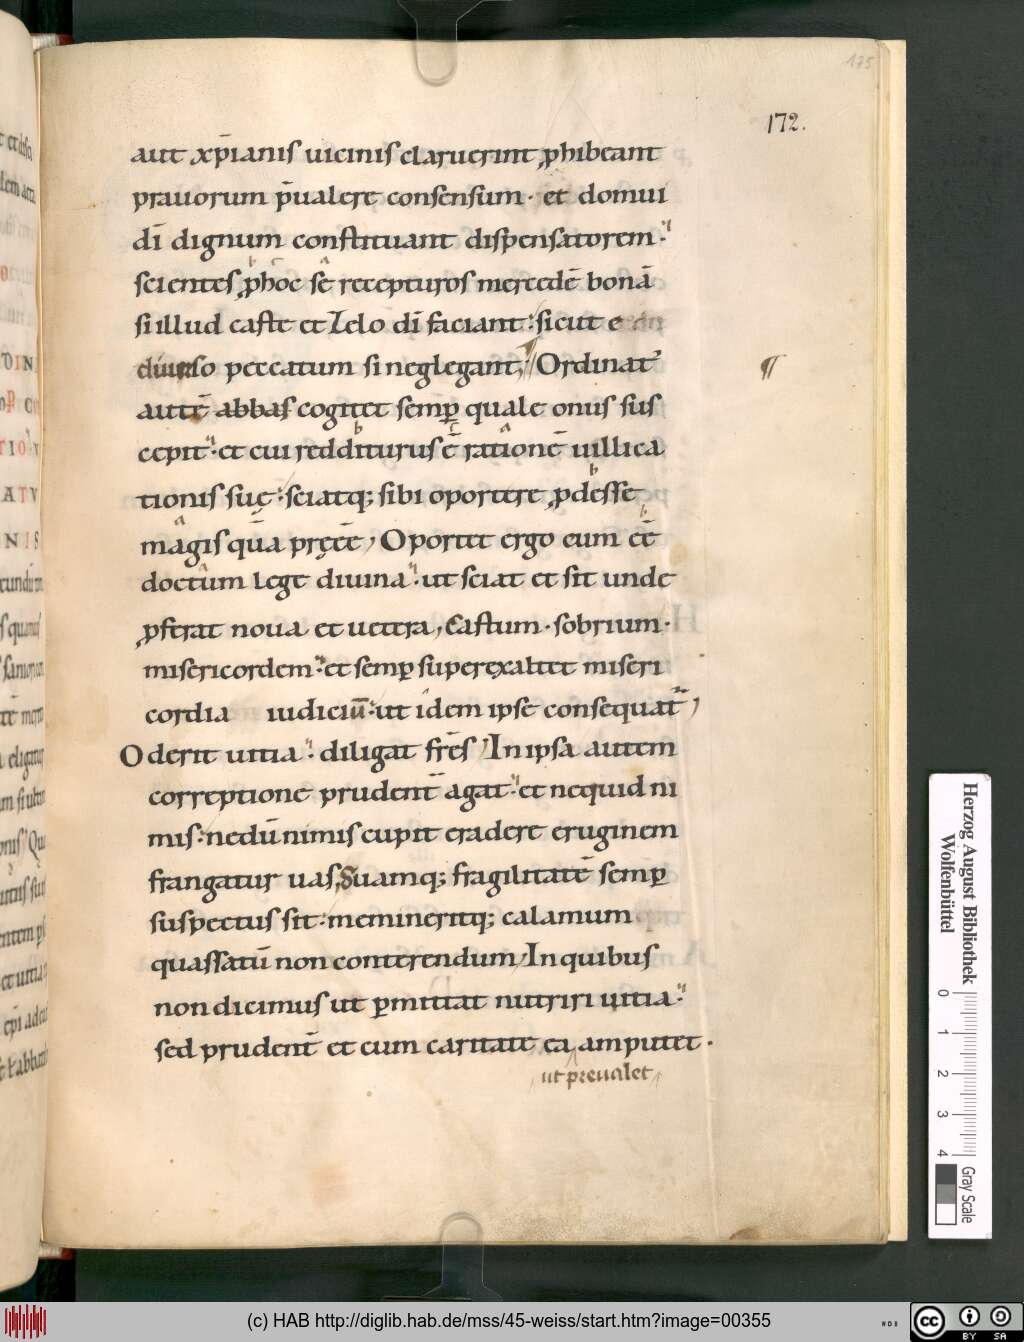 175
172.
aut xp̄ianis uicinis claruerint ꝓhibeant
prauorum p̄ualere consensum · et domui
dī dignum constituant dispensatorem
scientes ꝓhoc sē recepturos mercedē bonā
si illud caste et zelo dī faciant sicut e
diuerso peccatum si neglegant; Ordinat᷑
autē abbas cogitet semꝑ quale onus sus
cepit · et cui redditurus ē rationē uillica
tionis suę · sciatq; sibi oportere ꝓdesse
magis quā pręēē, Oportet ergo eum eē
doctum lege diuina · ut sciat et sit unde
ꝓferat noua et uetera, castum · sobrium ·
misericordem · et semꝑ superexaltet miseri
cordia iudiciū · ut idem ipse consequat᷑,
Oderit uitia · diligat fr̄es, In ipsa autem
correptione prudent̄ agat · et nequid ni
mis · nedū nimis cupit eradere eruginem
frangatur uas, Suamq; fragilitatē semꝑ
suspectus sit · memineritq; calamum
quassatū non conterendum, In quibus
non dicimus ut ꝑmittat nutriri uitia ·
sed prudent̄ et cum caritate ea amputet ·
ut preualet
Herzog August Bibliothek
Wolfenbüttel
0 1 2 3 4
Gray Scale
(c) HAB http://diglib.hab.de/mss/45-weiss/start.htm?image=00355
cc BY SA